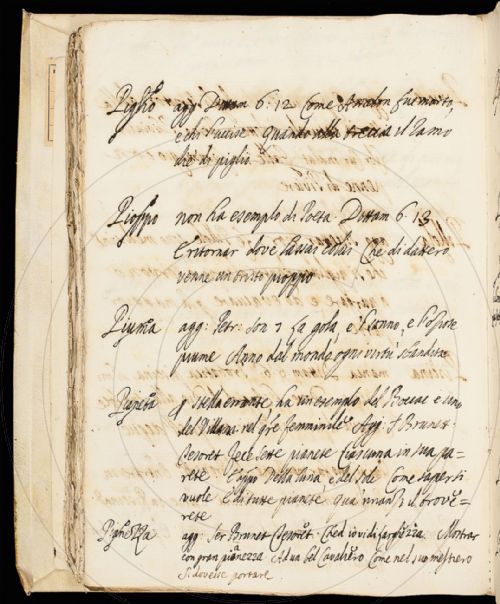 Piglio agg: Dittam 6: 12 Come Analon fu morto,
e chi l'uccise quando alla treccia il ramo
die di piglio
Pioppio non ha esempio di Poeta Dittam 6 13
E ritornar dove lassai Che di
venne un tristo pioppio
Piuma agg: Petr: son 7 La gola, e 'l sonno, e l'oziose
piume Anno del mondo ogni virtù sbandita
Pianeta stella errante, ha un esempio del Boccac e uno
del Villani nel gře femminile Agg: S Brunet
Tesoret sette pianete ciascuna in sua pa=
rete Della luna, e del sole Come saper ti
vuole E di tutte pianete trove=
rete
agg: Ser Brunet Tesoret. Ched io vidi larghezza Mostrar
con gran pianezza Ad un bel Cavaliero Come nel suo mestiero
Si dovesse portare